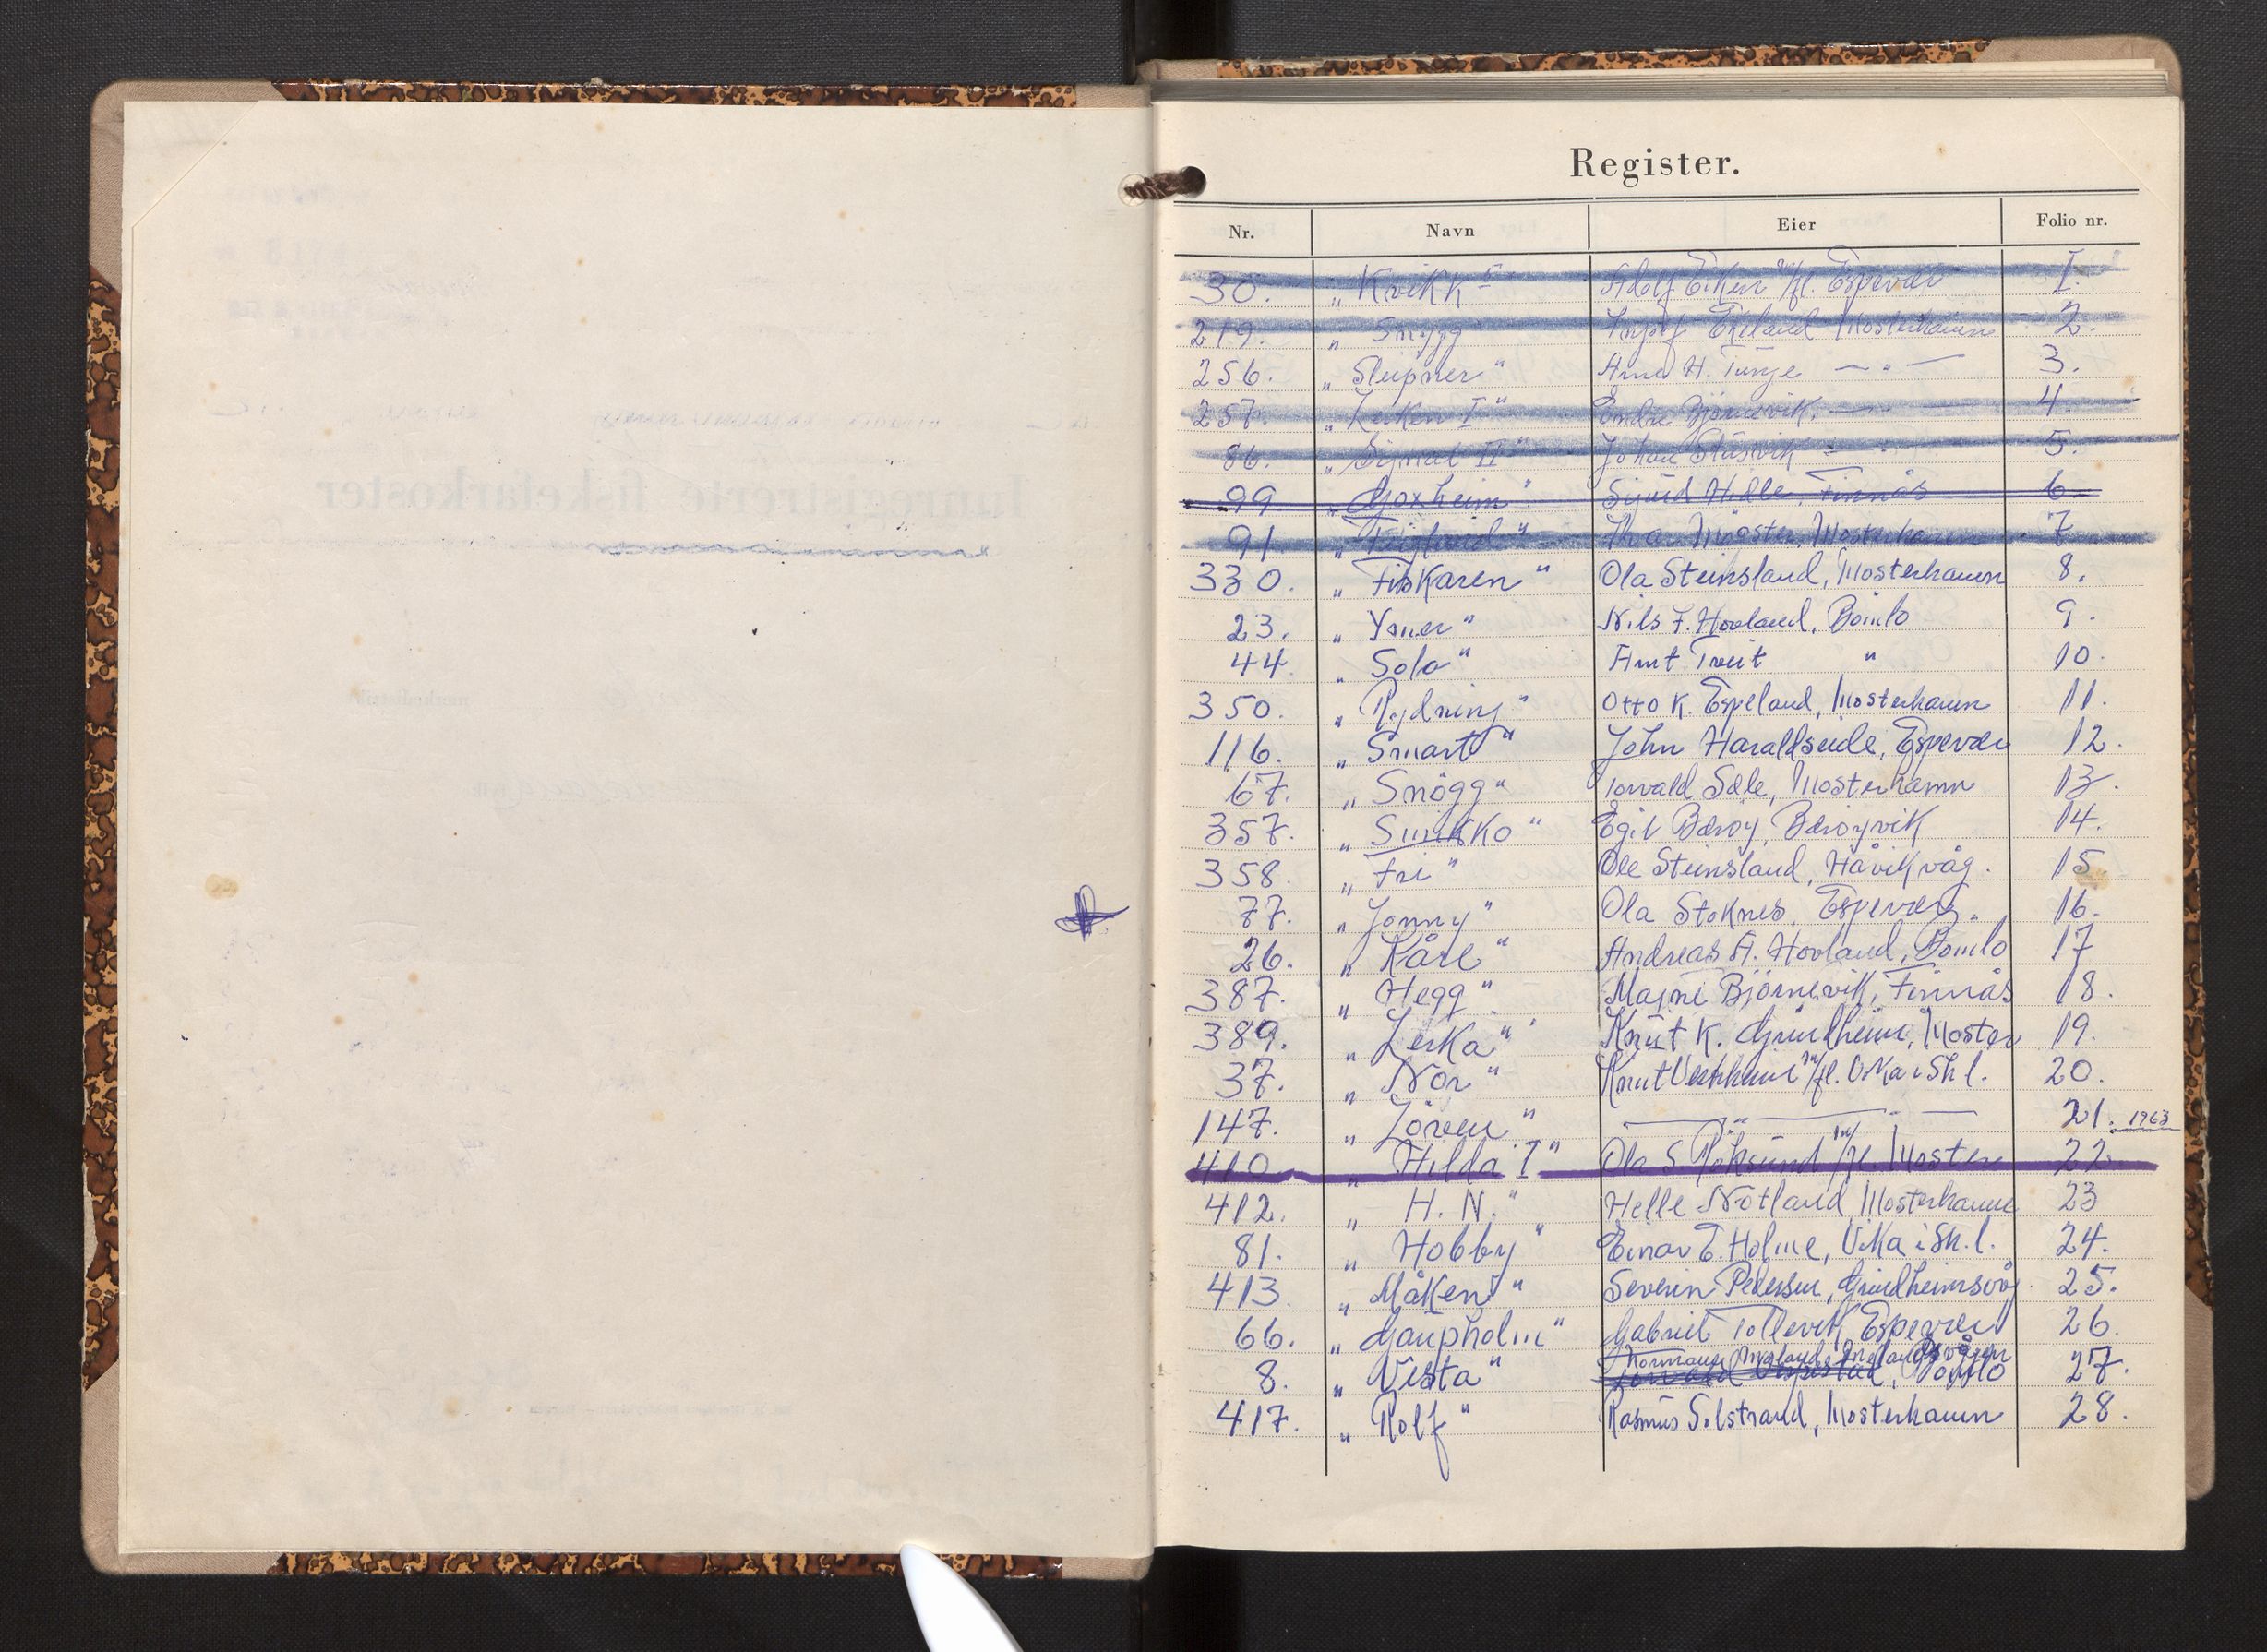 Register.
Nr. Navn Eier Folio nr.
30. „ Kvikk Adolf Eiken m/fl. Espevær I.
219. „ Snygg Espeland Mosterhamn 2.
256. „ Sleipner“ Arne H. Tunge — „ — 3.
257. „ Lerken I“ Endre Bjørnevik. — „ — 4.
86. „ Signal II“ Johan — „ — 5.
99 „ Goxheim“ Sigurd Hille, Finnås 6
91 Møgster, Mosterhamn 7
330. „ Fiskaren“ Ola Steinsland, Mosterhamn 8.
23. „ Ymer“ Nils F. Hovland, Bömlo 9.
44 „ Sola“ Amt Treit „ 10.
350. „ Rydning“ Otto K. Espeland, Mosterhamn 11.
116. „ Smart“ John Haraldseide, Espevær 12.
67. „ Snögg“ Torvald Sæle, Mosterhamn 13.
357. „ Sunkko“ Egil Bærøy, Bærøyvik 14.
358. „ Fri“ Ole Steinsland, Håvikvåg. 15
77. „ Jonny“ Ola Stoknes, Espevær. 16.
26. „ Kåre“ Andreas A. Hovland, Bömlo 17
387. „ Hegg“ Magne Björnevik, Finnås 18.
389. „ Lerka“ Knut K. Grindheim, Moster 19.
37. „ Nor“ Knut Vestrheim m/fl. Vika i Sh l. 20.
147. „ Löven“ — „ — „ — 21. 1963
410 „ Hilda I“ Ola S. Röksund m/fl. Moster 22.
412. „ H. N.“ Helle Nötland, Mosterhamn 23
81. „ Hobby“ Einar E. Holme, Vika i Sh. l. 24.
413 „ Måken“ Severin Pedersen, Grindheimsvåg. 25.
66. „ Gaupholm“ Gabriel Tollevik Espevær 26.
Normann
8. „ Vesta“ Torvald Vespestad, Bömlo 27.
417. „ Rolf“ Rasmus Solstrand, Mosterhamn 28.